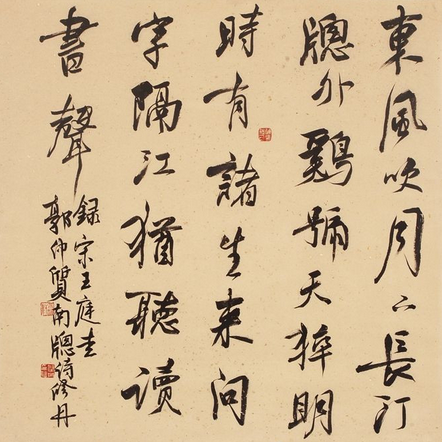 東風吹月下長汀
牕外鷄號天猝明
時有諸生来問
字隔江猶聽讀
書聲
録宋王庭圭
郭仲質南牕詩修丹